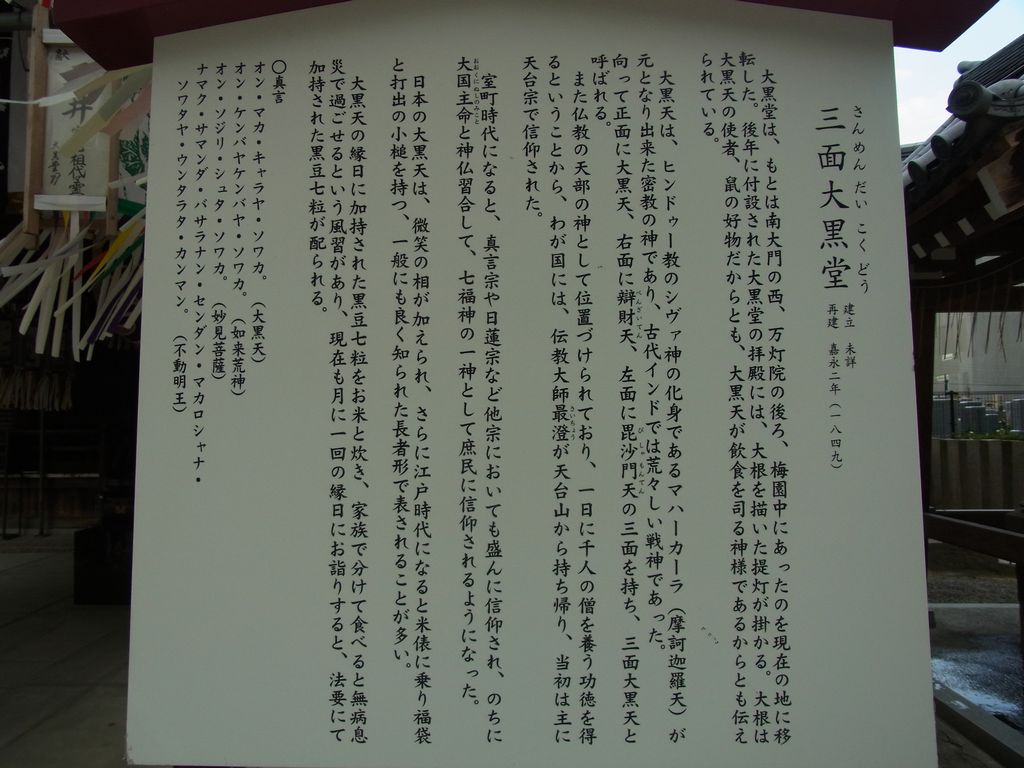 さんめん だい こく どう
三面大黒堂
建立 未詳
再建 嘉永二年(一八四九)
大黒堂は、もとは南大門の西、万灯院の後ろ、梅園中にあったのを現在の地に移
転した。後年に付設された大黒堂の拝殿には、大根を描いた提灯が掛かる。大根は
大黒天の使者、鼠の好物だからとも、大黒天が飲食を司る神様であるからとも伝え
られている。
大黒天は、ヒンドゥー教のシヴァ神の化身であるマハーカーラ(摩訶迦羅天)が
元となり出来た密教の神であり、古代インドでは荒々しい戦神であった。
向って正面に大黒天、右面に辯財天、左面に毘沙門天の三面を持ち、三面大黒天と
べんざいてん
びしゃもんてん
呼ばれる。
また仏教の天部の神として位置づけられており、一日に千人の僧を養う功徳を得
るということから、わが国には、伝教大師最澄が天台山から持ち帰り、当初は主に
さいちょう
天台宗で信仰された。
室町時代になると、真言宗や日蓮宗など他宗においても盛んに信仰され、のちに
大国主命と神仏習合して、七福神の一神として庶民に信仰されるようになった。
おおくにぬしのみこと
日本の大黒天は、微笑の相が加えられ、さらに江戸時代になると米俵に乗り福袋
と打出の小槌を持つ、一般にも良く知られた長者形で表されることが多い。
大黒天の縁日に加持された黒豆七粒をお米と炊き、家族で分けて食べると無病息
災で過ごせるという風習があり、現在も月に一回の縁日にお詣りすると、法要にて
加持された黒豆七粒が配られる。
〇真言
オン・マカ・キャラヤ・ソワカ。(大黒天)
オン・ケンバヤケンバヤ・ソワカ。(如来荒神)
オン・ソジリ・シュタ・ソワカ。(妙見菩薩)
ナマク・サマンダ・バサラナン・センダン・マカロシャナ・
ソワタヤ・ウンタラタ・カンマン。(不動明王)
献
井
祖代霊